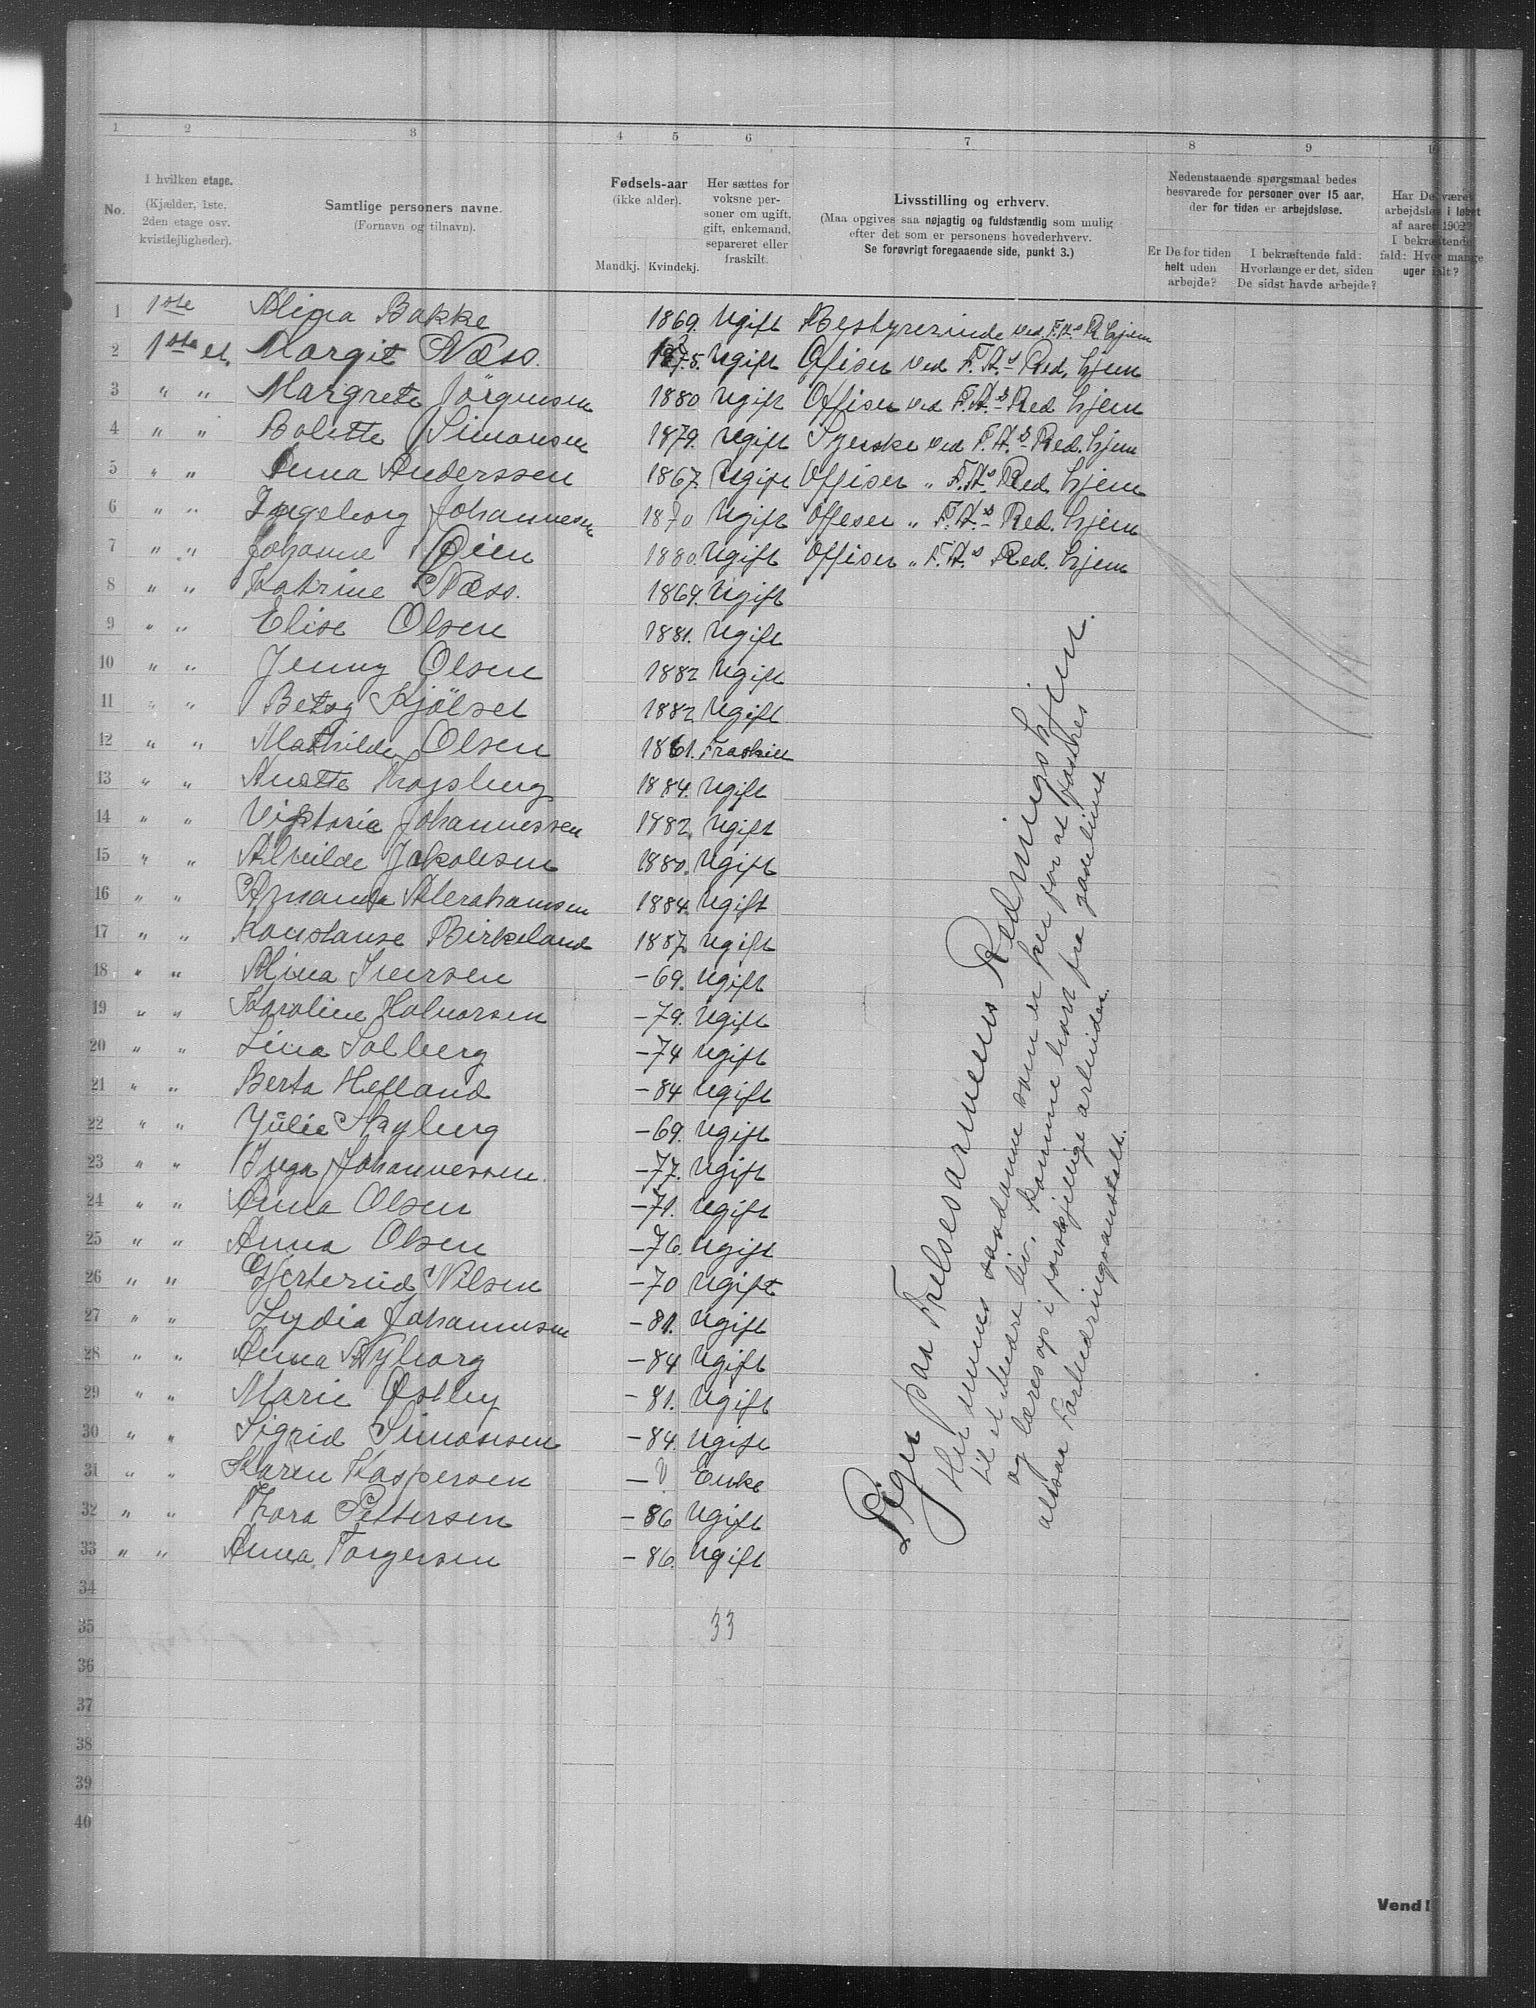 1 2 3 4 5 6 7 8 9 10
No.
I hvilken etage.
(Kjælder, 1ste,
2den etage osv.
kvistlejligheder).
Samtlige personers navne.
(Fornavn og tilnavn).
Fødsels-aar
(ikke alder).
Mandkj. Kvindekj.
Her sættes for
voksne per-
soner om ugift,
gift, enkemand,
separeret eller
fraskilt.
Livsstilling og erhverv.
(Maa opgives saa nøjagtig og fuldstændig som mulig
efter det som er personens hovederhverv.
Se forøvrigt foregaaende side, punkt 3.)
Nedenstaaende spørgsmaal bedes
besvarede for personer over 15 aar,
der for tiden er arbejdsløse.
Er De for tiden
helt uden
arbejde?
I bekræftende fald:
Hvorlænge er det, siden
De sidst havde arbejde?
Har De været
arbejdsløs i løbet
af aaret 1902?
I bekræftende
fald: Hvor mange
uger ialt?
1 1ste Alina Bakke 1869. Ugift Bestyrerinde ved F.A.s R. hjem
2 1ste et. Margit Næss. 1875. Ugift Ofiser ved F.A.s Red. hjem
3 " " Margrete Jörgensen 1880 Ugift Offiser ved F.A.s Red hjem
4 " " Bolette Simonsen 1879. Ugift Syerske ved F.A.s Red. hjem
5 " " Anna Anderssen 1867. Ugift Offiser " F.A.s Red. hjem
6 " " Ingeborg Johannesen 1870 Ugift Offiser " F.A.s Red. hjem
7 " " Johanne Øien 1880. Ugift Offiser " F.A.s Red. hjem
8 " " Katrine Næss. 1869. Ugift
9 " " Elise Olsen 1881. Ugift
10 " " Jenny Olsen 1882 Ugift
11 " " Betsy Kjölset 1882 Ugift
12 " " Mathilde Olsen 1861. Fraskilt
13 " " Anette 1884. Ugift
14 " " Viktoria Johannessen 1882. Ugift
15 " " Alvilde Jakobsen 1880. Ugift
16 " " Amanda Abrahamsen 1884. Ugift
17 " " Konstanse Birkeland 1887 Ugift
18 " " Alina Iversen -69. Ugift
19 " " Karoline Halvorsen -79. Ugift
20 " " Lina Solberg -74 Ugift
21 " " Berta Helland -84 Ugift
22 " " Julie -69. Ugift
23 " " Inga Johannessen. -77. Ugift
24 " " Anna Olsen -71. Ugift
25 " " Anna Olsen -76. Ugift
26 " " Gjerterud Nilsen -70 Ugift
27 " " Lydia Johannesen -81. Ugift
28 " " Anna Nyborg -84 Ugift
29 " " Marie Østby -81. Ugift
30 " " Sigrid Simonsen -84. Ugift
31 " " Karen Kaspersen -? Enke
32 " " Thora Pettersen -86 Ugift
33 " " Anna Torgersen -86. Ugift
34
35 33
36
37
38
39
40
Piger paa Frelsesarmeens Redningshjem.
Her menes saadanne som er her for at hjælpes
til et bedre liv, komme bort fra
og læres op i forskjellige arbeider.
altsaa Forbedringsanstalt.
Vend!